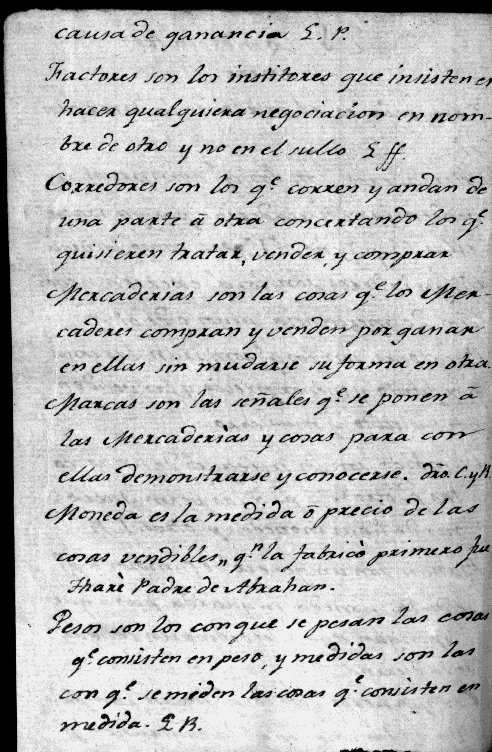 causa de ganancia L. P.
Factores son los institores que insisten en
hacer qualquiera negociacion en nom-
bre de otro y no en el sullo L ff.
Corredores son los q.e corren y andan de
una parte â otra concertando los q.e
quisieren tratar, vender, y comprar
Mercaderias son las cosas q.e los Mer-
caderes compran y venden por ganar
en ellas sin mudarse su forma en otra.
Marcas son las señales q.e se ponen â
las Mercaderìas y cosas para con
ellas demonstrarse y conocerse. dro. C. y R.
Moneda es la medida ô precio de las
cosas vendibles, q.n la fabricò primero fue
Tharè Padre de Abrahan.
Pesos son los con que se pesan las cosas
q.e consisten en peso, y medidas son las
con q.e se miden las cosas q.e consisten en
medida. L R.